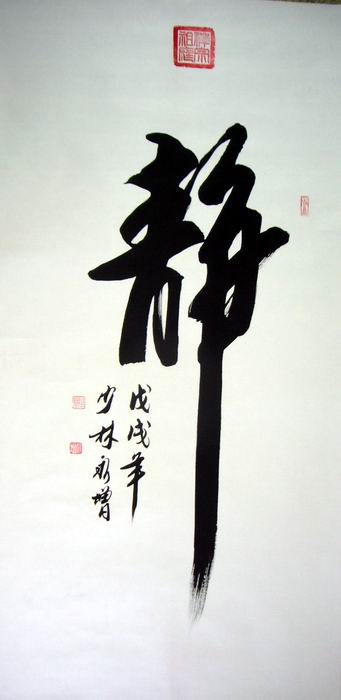 禪宗
祖庭
静
戊戌年
少林永增